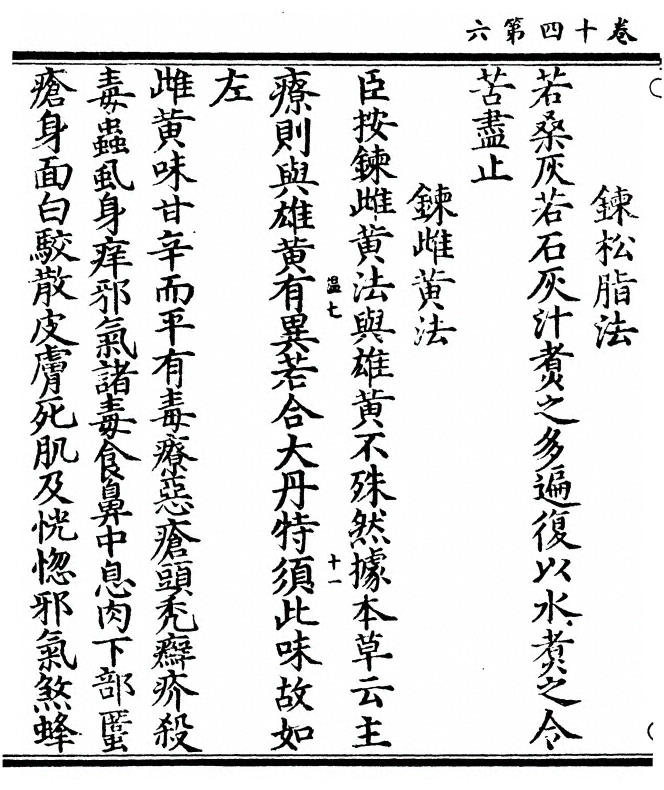 卷十四第六
鍊松脂法
若桑灰若石灰汁煑之多遍復以水煑之令
苦盡止
鍊雌黄法
臣按鍊雌黄法與雄黄不殊然據本草云主
温七
十一
療則與雄黄有異若合大丹特須此味故如
左
雌黄味甘辛而平有毒療惡瘡頭禿癬疥殺
毒蟲虱身痒邪氣諸毒食鼻中息肉下部䘌
瘡身面白駮散皮膚死肌及恍惚邪氣煞蜂